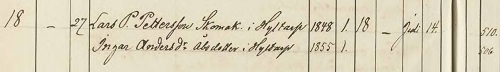 18 – 27 Lars P. Pettersson Skomak. i Hyltarp 1848 1. 18 – Jud. 14. 510.
Ingar Andersdr. Åbodotter i Hyltarp 1855 1. 506